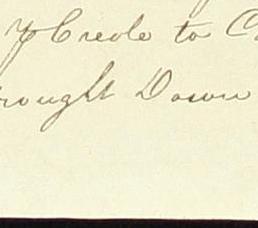 Creole to
rought Down